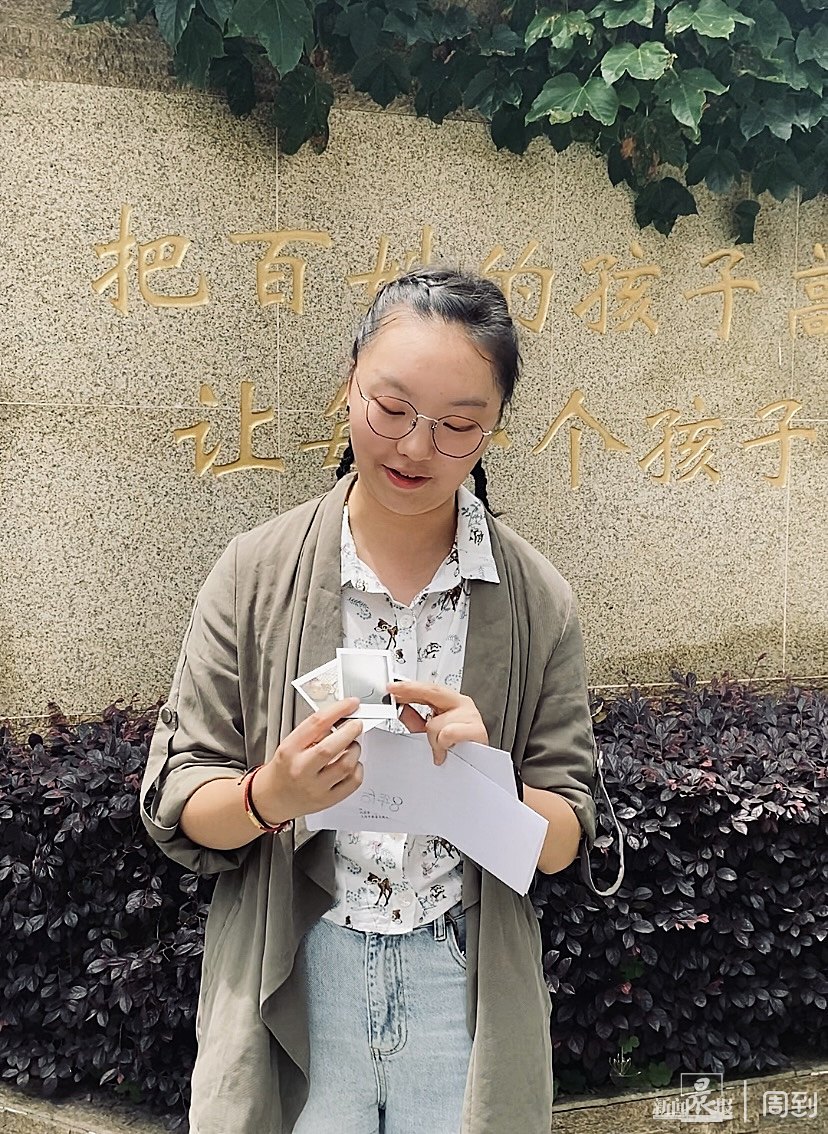 把百姓的孩子高
让每一个孩子
新闻晨报 | 周到